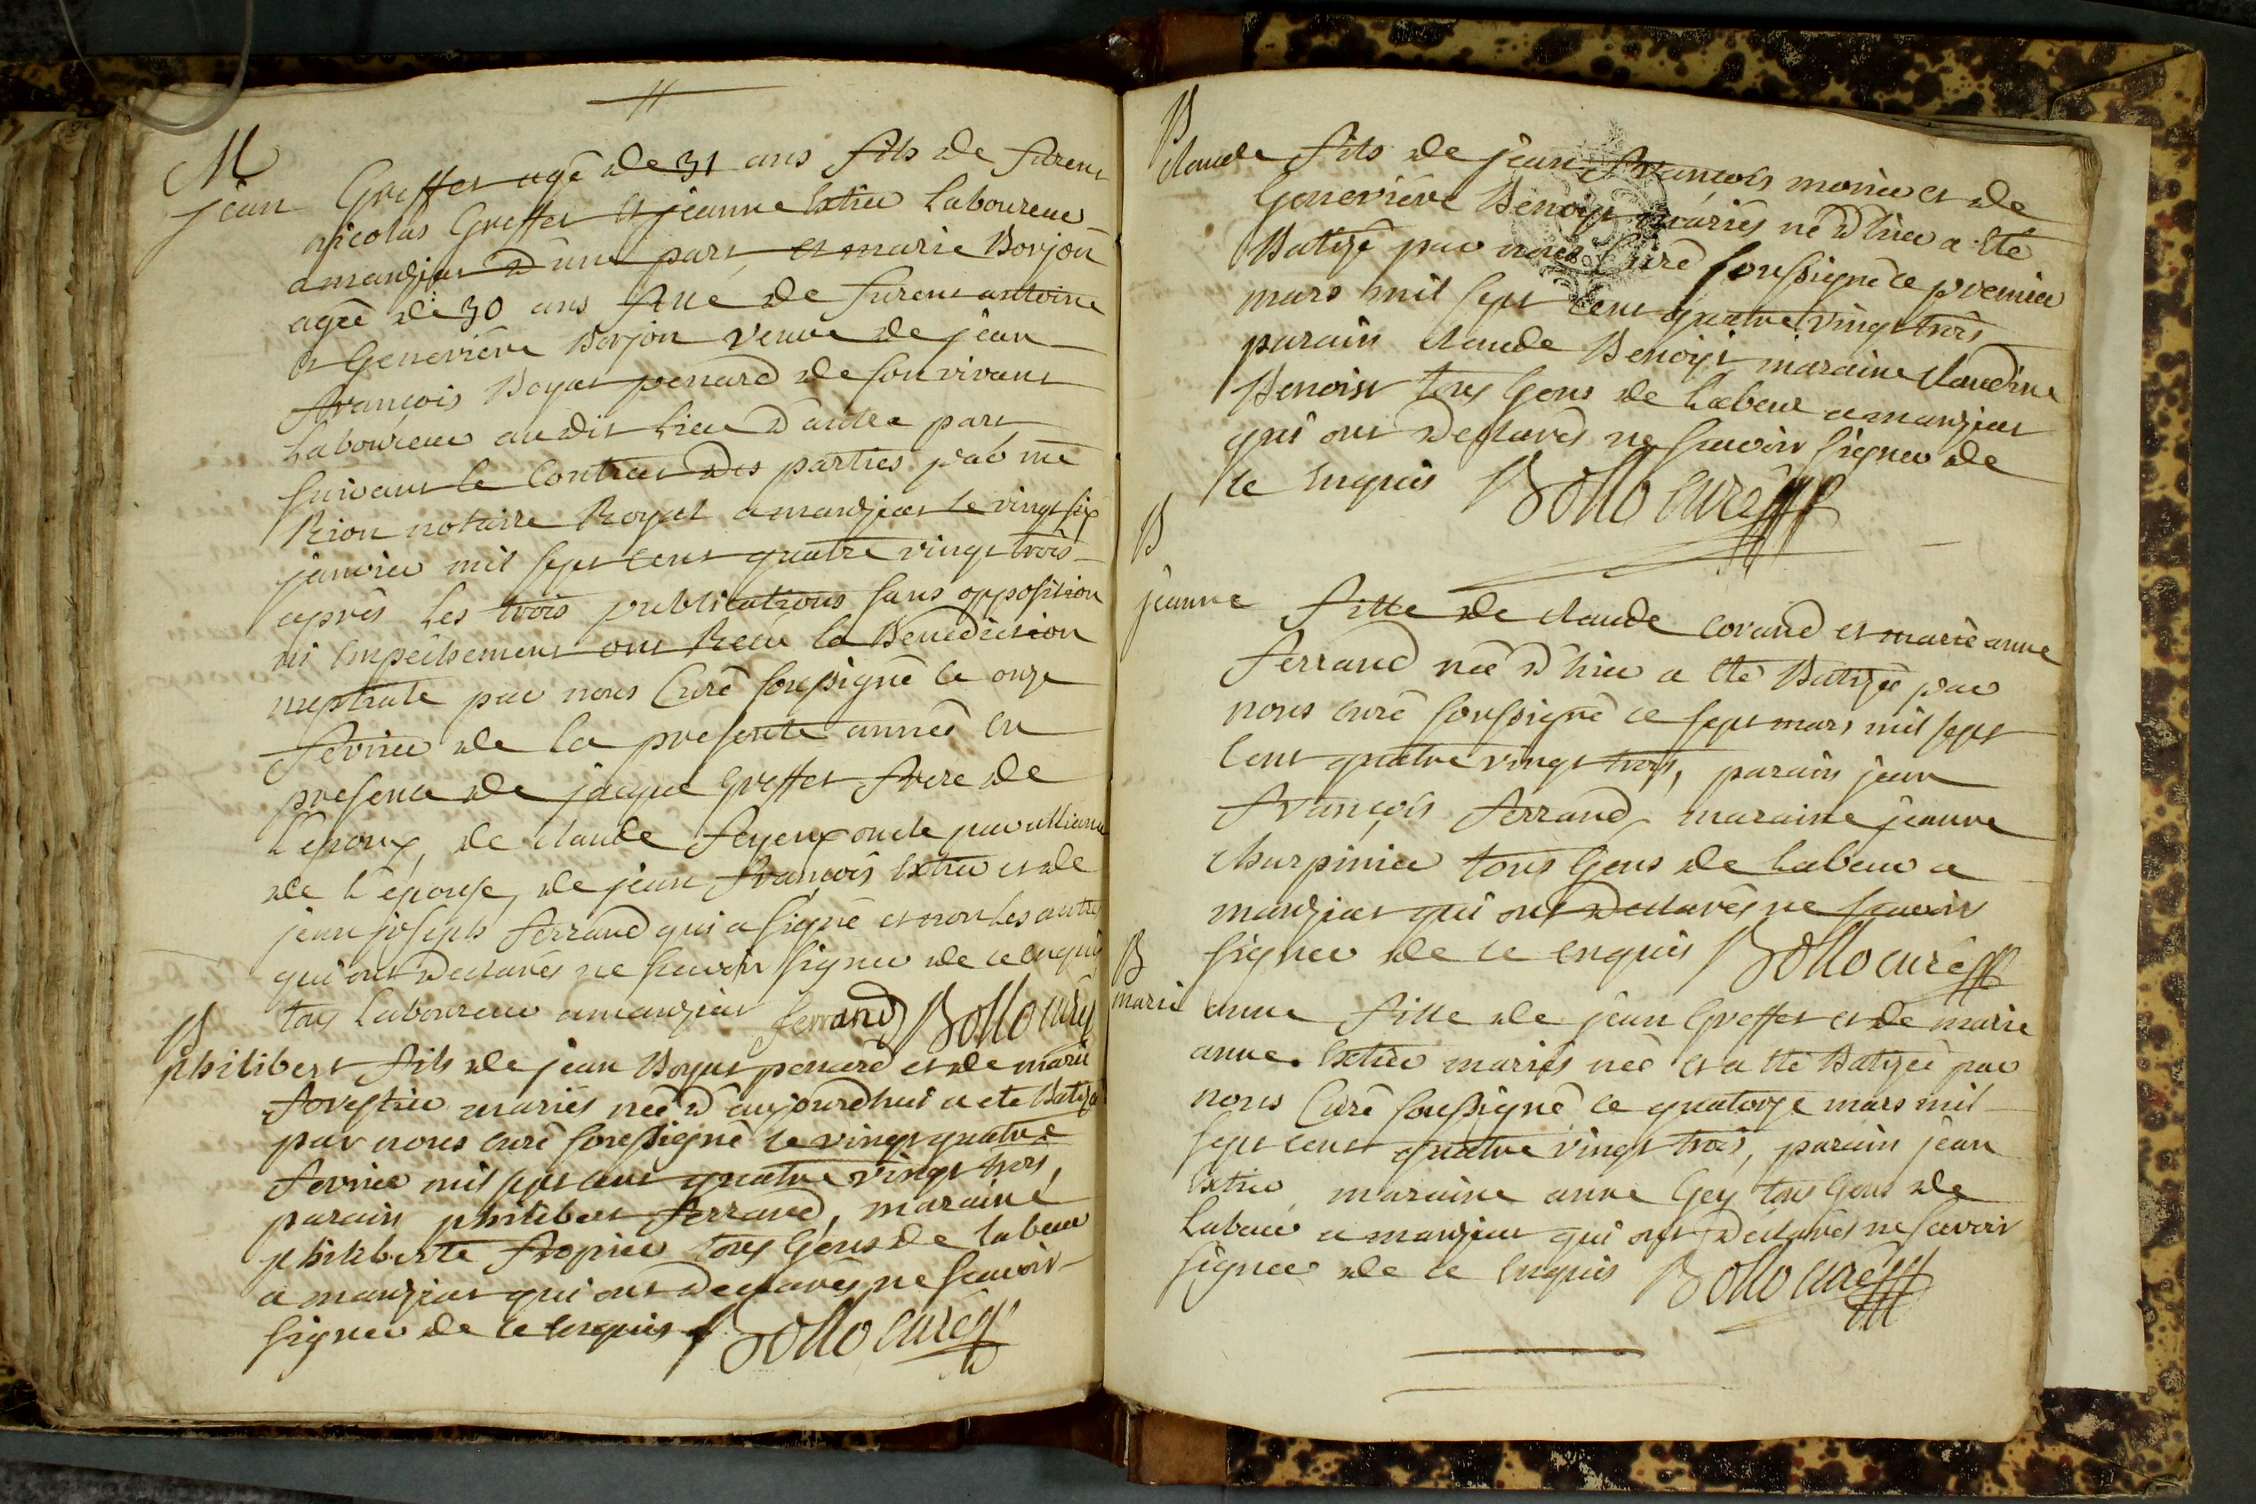 M
jean Greffet agé de 31 ans fils de furent
nicolas Greffet et jeanne Extier Laboureur
a manziat d'une part, et marie Borjon
agée de 30 ans fille de furent antoine
et Geneviéve Borjon veuve de jean
françois Boyat penard de son vivant
Laboureur au dit Lieu d'autre part
suivant le Contract des parties par me
Rion notaire Royal a manziat le vingt six
janvier mil sept cent quatre vingt trois
après les trois publications sans opposition
ni Empêchement ont Recu la Benediction
nuptiale par nous Curé soussigné le onze
fevrier de la presente année en
presence de jaque Greffet frere de
L'epoux, de claude feyeux oncle par alliance
de L'épouse, de jean françois Extier et de
jean joseph ferrand qui a signé et non les autres
qui ont declarés ne scavoir signer de ce enquis
tous Laboureur a manziat ferrand Bollo curé
B
philibert fils de jean Boyat penard et de marie
forestier mariés née d'aujourdhui a ete Batizé
par nous curé soussigné le vingt quatre
fevrier mil sept cent quatre vingt trois,
parain philibert ferrand, maraine
philiberte fropier tous Gens de labeur
a manziat qui ont declarés ne scavoir
signer de ce enquis Bollo curé
B
claude fils de jean françois monier et de
Geneviéve Benoist mariés né d'hier a été
Batizé par nous Curé soussigné ce premier
mars mil sept cent quatre vingt trois
parain claude Benoist maraine claudine
Benoist tous Gens de Labeur a manziat
qui ont declarés ne scavoir signer de
ce enquis Bollo curé
B
jeanne fille de claude corand et marie anne
ferrand née d'hier a été Batizée par
nous curé soussigné ce sept mars mil sept
cent quatre vingt trois, parain jean
françois ferrand, maraine jeanne
charpinier tous Gens de Labeur a
manziat qui ont declarés ne scavoir
signer de ce enquis Bollo curé
B
marie anne fille de jean Greffet et de marie
anne Extier mariés née et a été Batizée par
nous Curé soussigné ce quatorze mars mil
sept cent quatre vingt trois, parain jean
Extier maraine anne Gey tous Gens de
Labeur a manziat qui ont declarés ne scavoir
signer de ce enquis Bollo curé